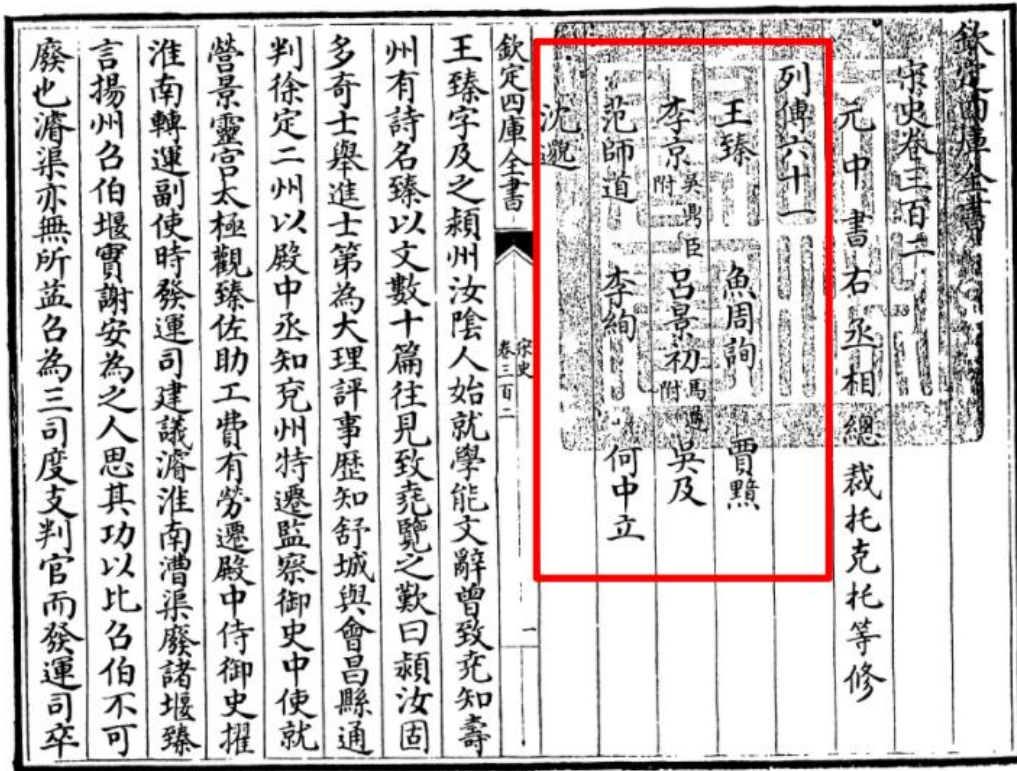 欽定四庫全書
宋史卷三百二
元中書右丞相總裁托克托等修
列傳六十一
王臻 魚周詢 賈黯
李京 吳鼎臣附 呂景初 馬遵附 吳及
范師道 李絢 何中立
沈邈
欽定四庫全書 宋史卷三百二 一
王臻字及之潁州汝陰人始就學能文辭曾致堯知壽
州有詩名臻以文數十篇往見致堯覽之歎曰潁汝固
多奇士舉進士第為大理評事歴知舒城與會昌縣通
判徐定二州以殿中丞知兖州特遷監察御史中使就
營景靈宮太極觀臻佐助工費有勞遷殿中侍御史擢
淮南轉運副使時發運司建議濬淮南漕渠廢諸堰臻
言揚州召伯堰實謝安為之人思其功以比召伯不可
廢也濬渠亦無所益召為三司度支判官而發運司卒